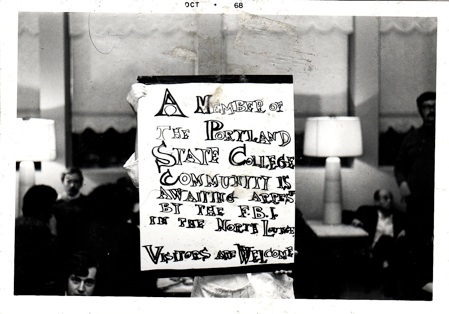 OCT • 68
A MEMBER OF
THE PORTLAND
STATE COLLEGE
COMMUNITY IS
AWAITING ARREST
BY THE F.B.I.
IN THE NORTH LOUNGE
VISITORS ARE WELCOME